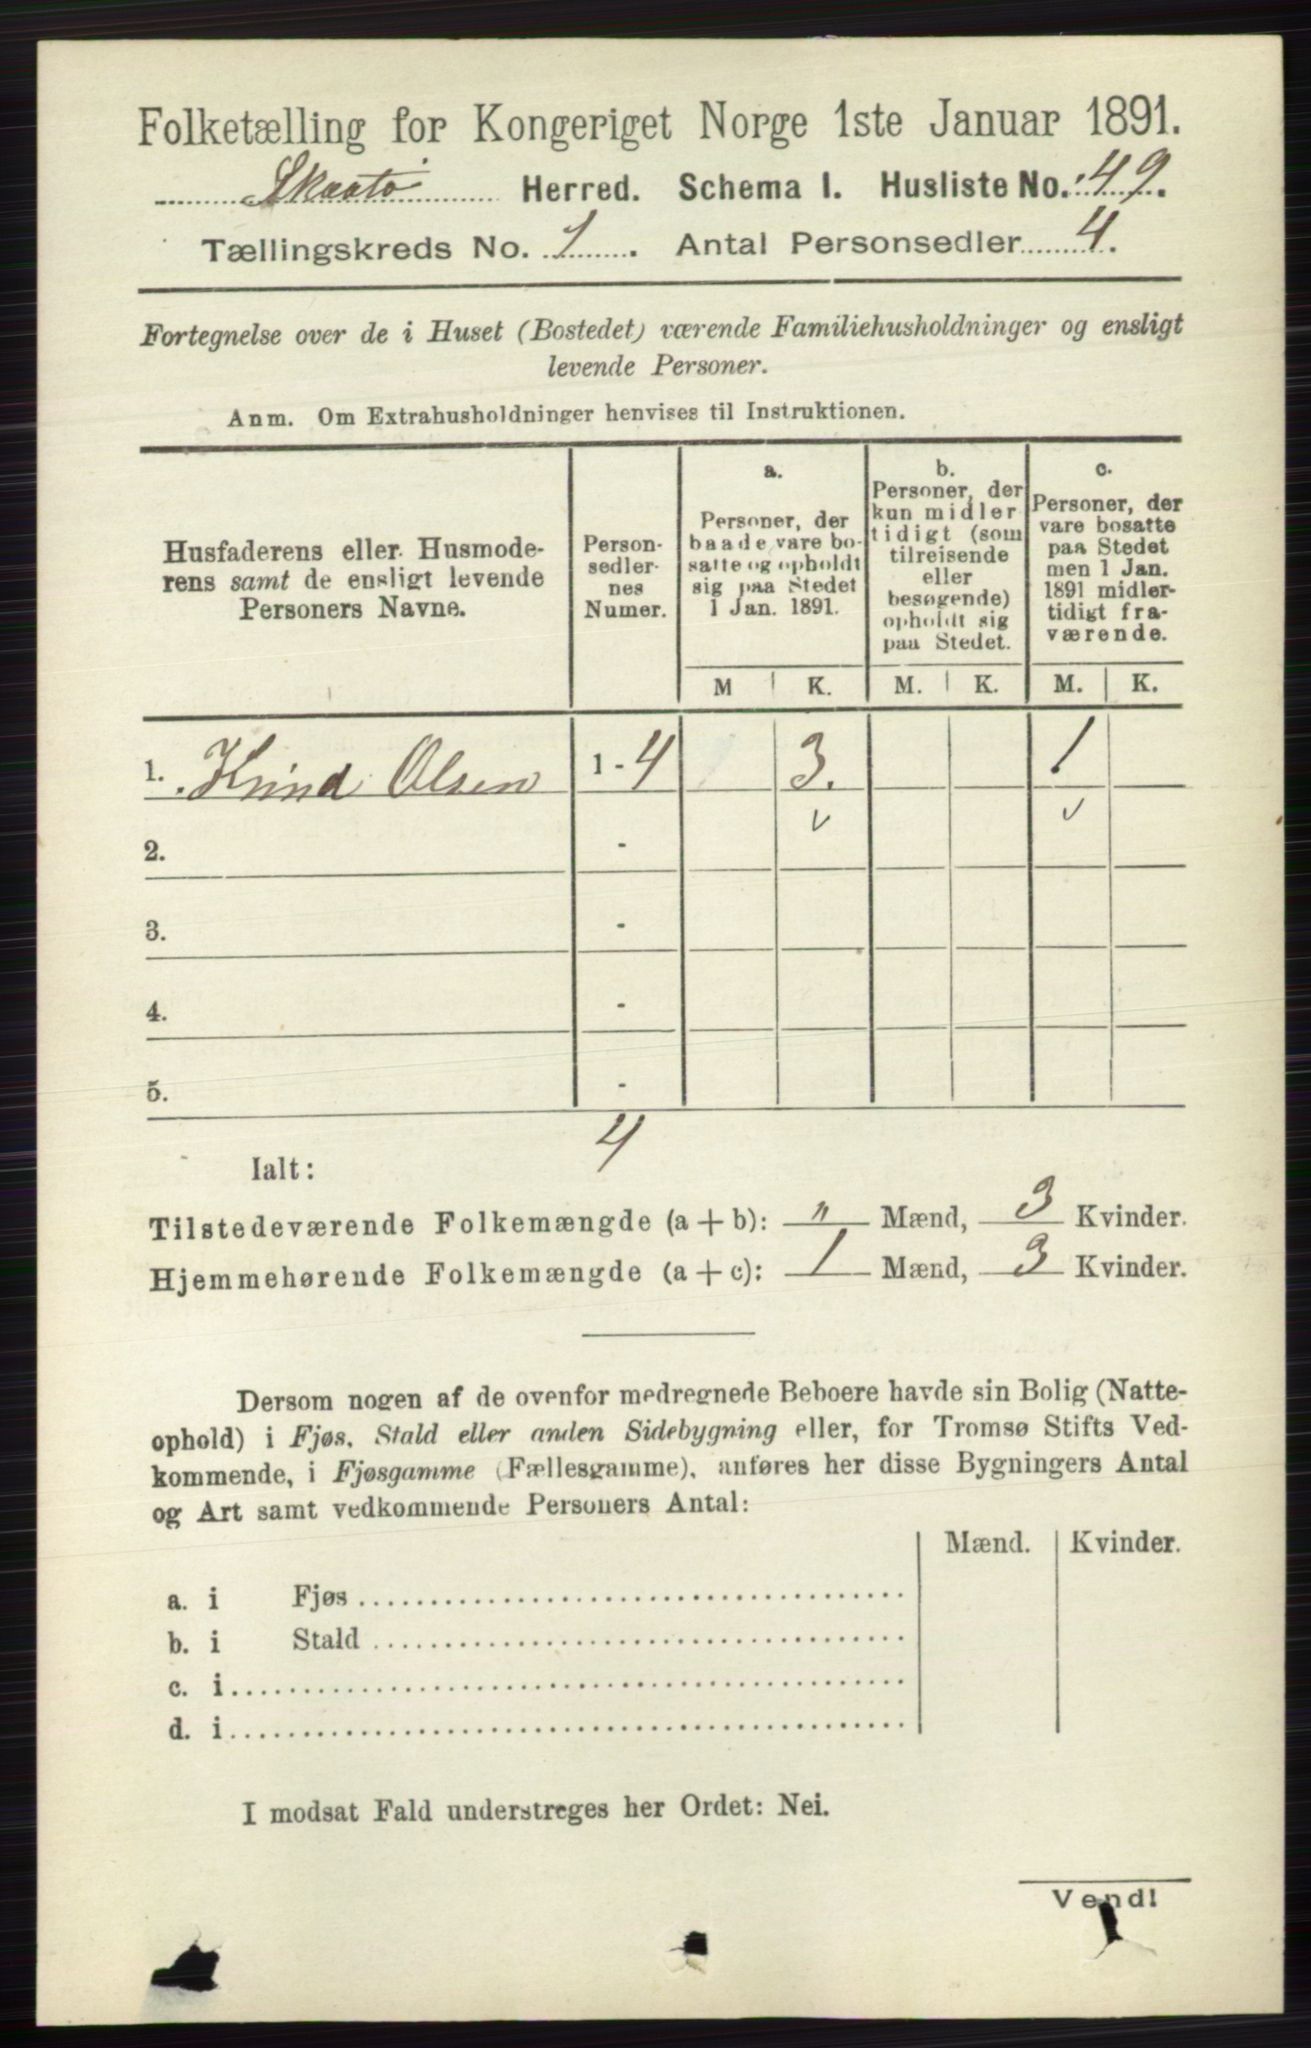 Folketælling for Kongeriget Norge 1ste Januar 1891.
Skaatø Herred. Schema I. Husliste No. 49.
Tællingskreds No. 1. Antal Personsedler 4.
Fortegnelse over de i Huset (Bostedet) værende Familiehusholdninger og ensligt
levende Personer.
Anm. Om Extrahusholdninger henvises til Instruktionen.
Husfaderens eller Husmode-
rens samt de ensligt levende
Personers Navne.
Person-
sedler-
nes
Numer.
a.
Personer, der
baade vare bo-
satte og opholdt
sig paa Stedet
1 Jan. 1891.
b.
Personer, der
kun midler
tidigt (som
tilreisende
eller
besøgende)
opholdt sig
paa Stedet.
c.
Personer, der
vare bosatte
paa Stedet
men 1 Jan.
1891 midler-
tidigt fra-
værende.
M K. M. K. M. K.
1. Olsen 1 - 4 3. 1
2. -
3. -
4. -
5. -
4
Ialt:
Tilstedeværende Folkemængde (a + b): " Mænd, 3 Kvinder.
Hjemmehørende Folkemængde (a + c): 1 Mænd, 3 Kvinder.
Dersom nogen af de ovenfor medregnede Beboere havde sin Bolig (Natte-
ophold) i Fjøs, Stald eller anden Sidebygning eller, for Tromsø Stifts Ved-
kommende, i Fjøsgamme (Fællesgamme), anføres her disse Bygningers Antal
og Art samt vedkommende Personers Antal:
Mænd. Kvinder.
a. i Fjøs
b. i Stald
c. i
d. i
I modsat Fald understreges her Ordet: Nei.
Vend!